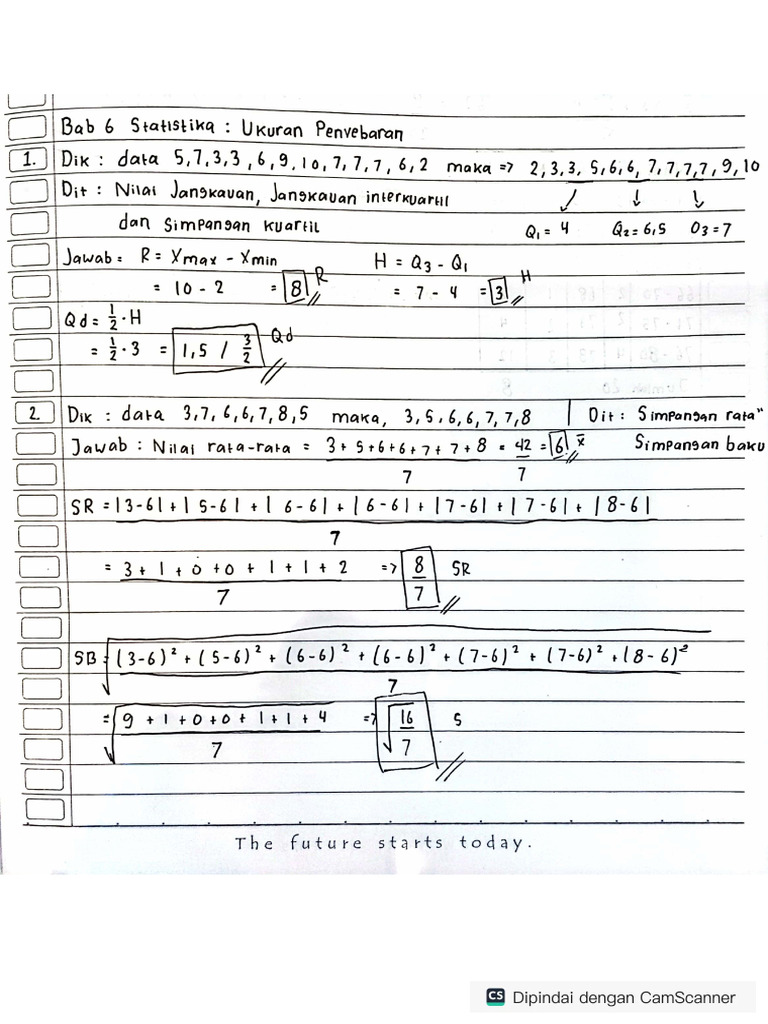 Bab 6 Statistika : Ukuran Penyebaran
1. Dik : data 5,7,3,3,6,9,10,7,7,7,6,2 maka => 2,3,3,5,6,6,7,7,7,7,9,10
Dit : Nilai Jangkauan, Jangkauan interkuartil
dan Simpangan kuartil Q₁ = 4 Q₂ = 6,5 Q₃ = 7
Jawab = R = Xmax - Xmin H = Q₃ - Q₁
= 10 - 2 = 8 R = 7 - 4 = 3 H
Qd = 1/2 · H
= 1/2 · 3 = 1,5 / 3/2 Qd
2. Dik : data 3,7,6,6,7,8,5 maka, 3,5,6,6,7,7,8 | Dit : Simpangan rata"
Jawab : Nilai rata-rata = 3+5+6+6+7+7+8 / 7 = 42 / 7 = 6 x̄ Simpangan baku
SR = |3-6| + |5-6| + |6-6| + |6-6| + |7-6| + |7-6| + |8-6| / 7
= 3 + 1 + 0 + 0 + 1 + 1 + 2 / 7 => 8/7 SR
SB = √ (3-6)² + (5-6)² + (6-6)² + (6-6)² + (7-6)² + (7-6)² + (8-6)² / 7
= √ 9 + 1 + 0 + 0 + 1 + 1 + 4 / 7 => √ 16/7 S
The future starts today.
CS Dipindai dengan CamScanner